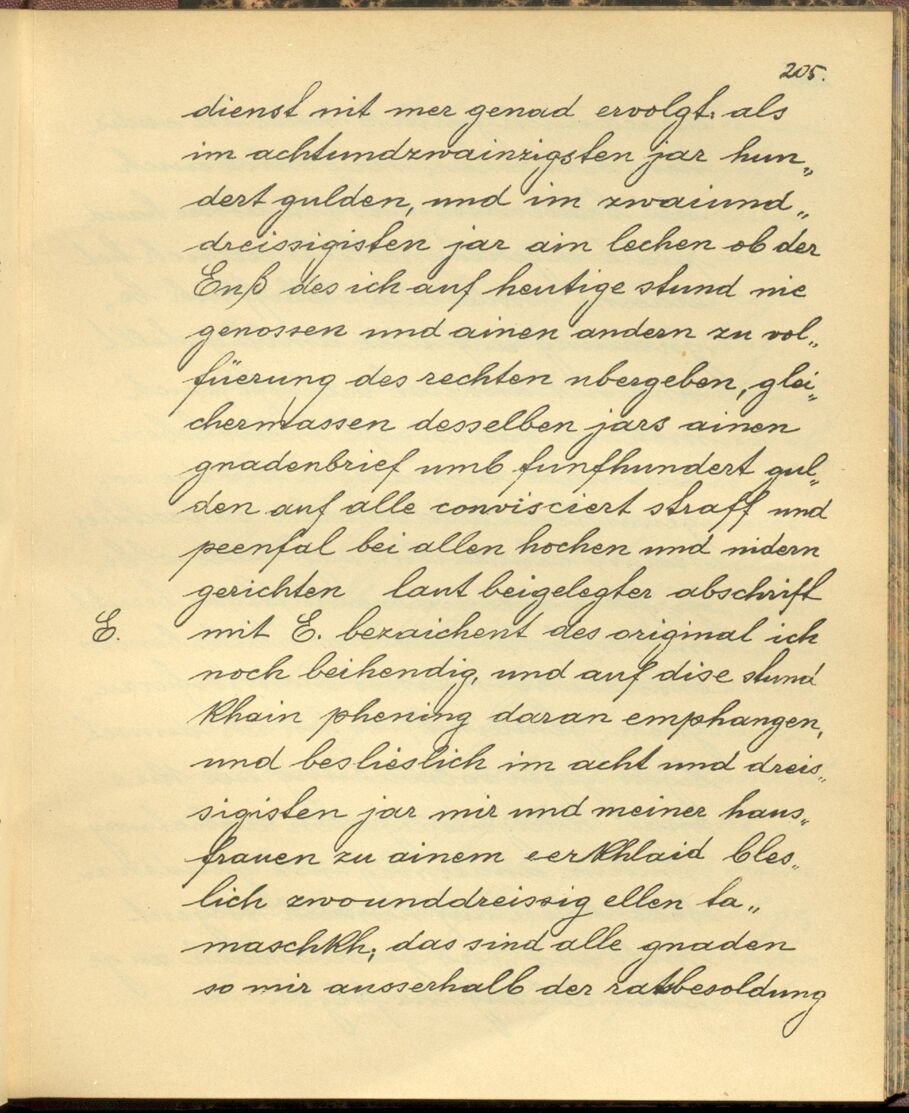 205.
dienst nit mer genad ervolgt: als
im achtundzwainzigsten jar hun„
dert gulden, und im zwaiund„
dreissigisten jar ain lechen ob der
Enß des ich auf heutige stund nie
genossen und ainen andern zu vol„
füerung des rechten ubergeben, glei„
chermassen desselben jars ainen
gnadenbrief umb funfhundert gul„
den auf alle convisciert straff und
peenfal bei allen hochen und nidern
gerichten laut beigelegter abschrift
E. mit E. bezaichent des original ich
noch beihendig, und auf dise stund
khain phening daran emphangen,
und beslieslich im acht und dreis„
sigisten jar mir und meiner haus„
frauen zu ainem eerkhlaid bles„
lich zwounddreissig ellen ta„
maschkh; das sind alle gnaden
so mir ausserhalb der ratsbesoldung